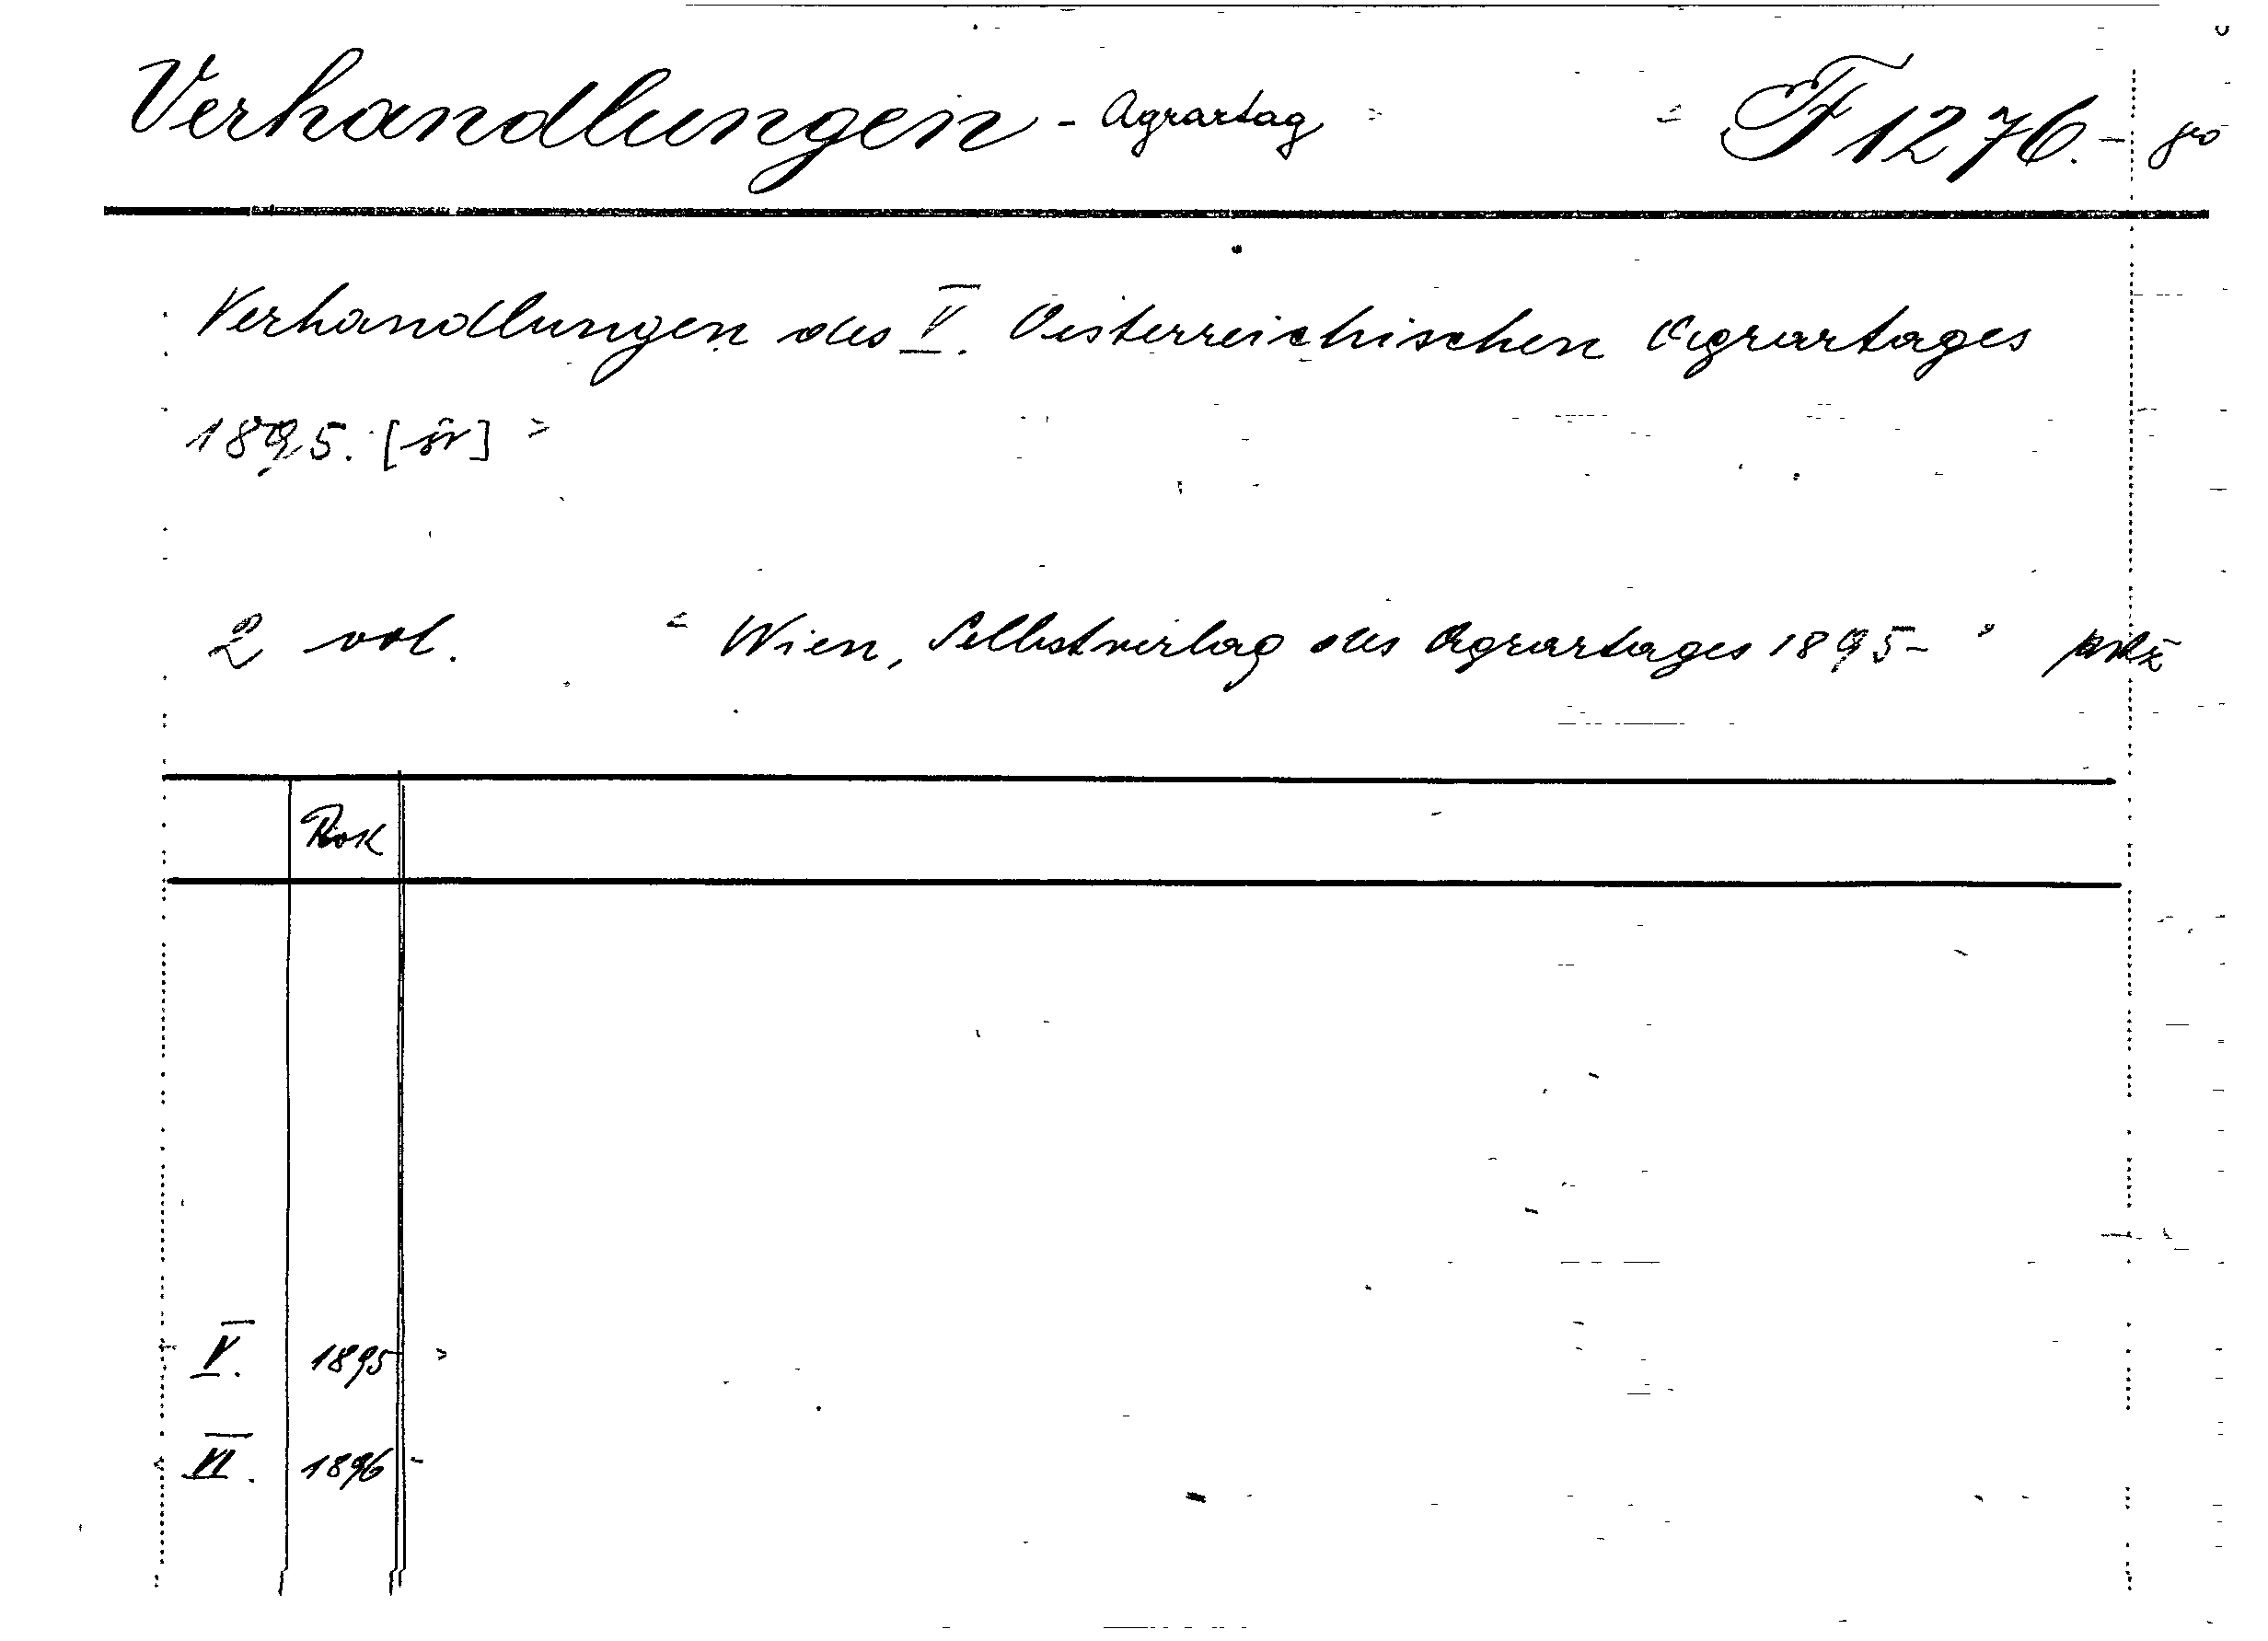 Verhandlungen - Agrartag F 1276.-
Verhandlungen des V. Oesterreichischen Agrartages
1895.
2 vol. Wien, Selbstverlag des Agrartages 1895-
Rok
V. 1895
VI. 1896